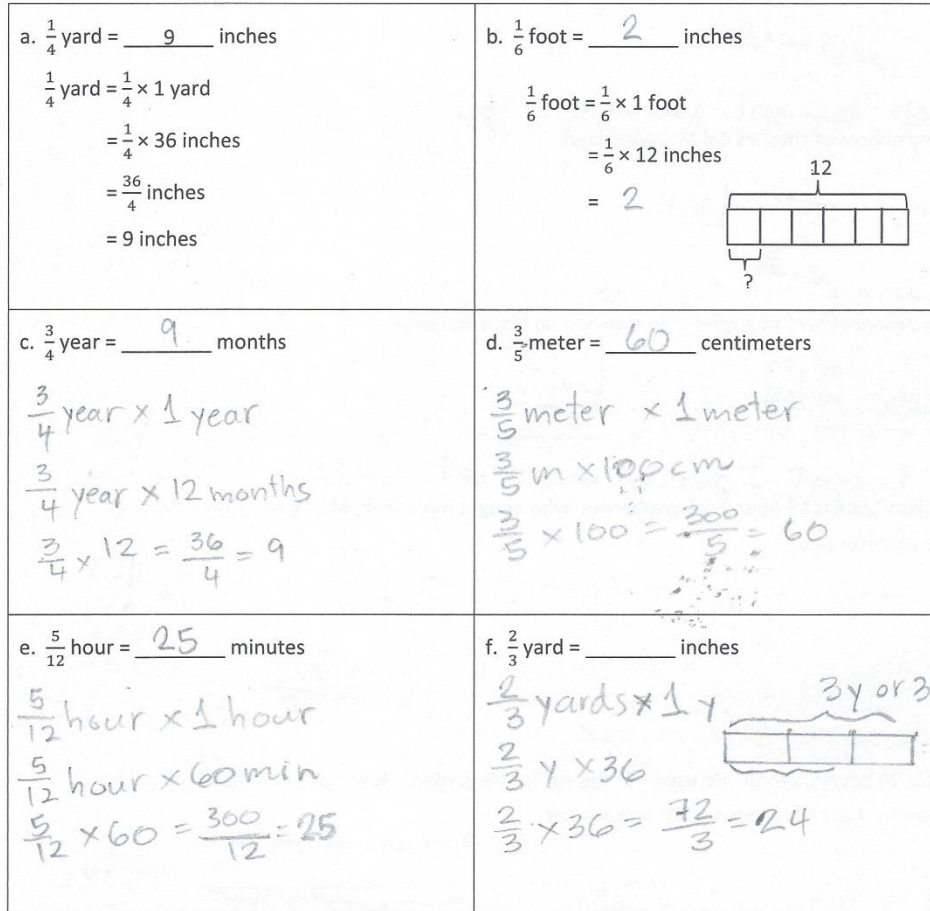 a. 1/4 yard = 9 inches
1/4 yard = 1/4 × 1 yard
= 1/4 × 36 inches
= 36/4 inches
= 9 inches
b. 1/6 foot = 2 inches
1/6 foot = 1/6 × 1 foot
= 1/6 × 12 inches
= 2
12
?
c. 3/4 year = 9 months
3/4 year × 1 year
3/4 year × 12 months
3/4 × 12 = 36/4 = 9
d. 3/5 meter = 60 centimeters
3/5 meter × 1 meter
3/5 m × 100 cm
3/5 × 100 = 300/5 = 60
e. 5/12 hour = 25 minutes
5/12 hour × 1 hour
5/12 hour × 60 min
5/12 × 60 = 300/12 = 25
f. 2/3 yard = ______ inches
2/3 yards × 1 y
2/3 y × 36
2/3 × 36 = 72/3 = 24
3 y or 3